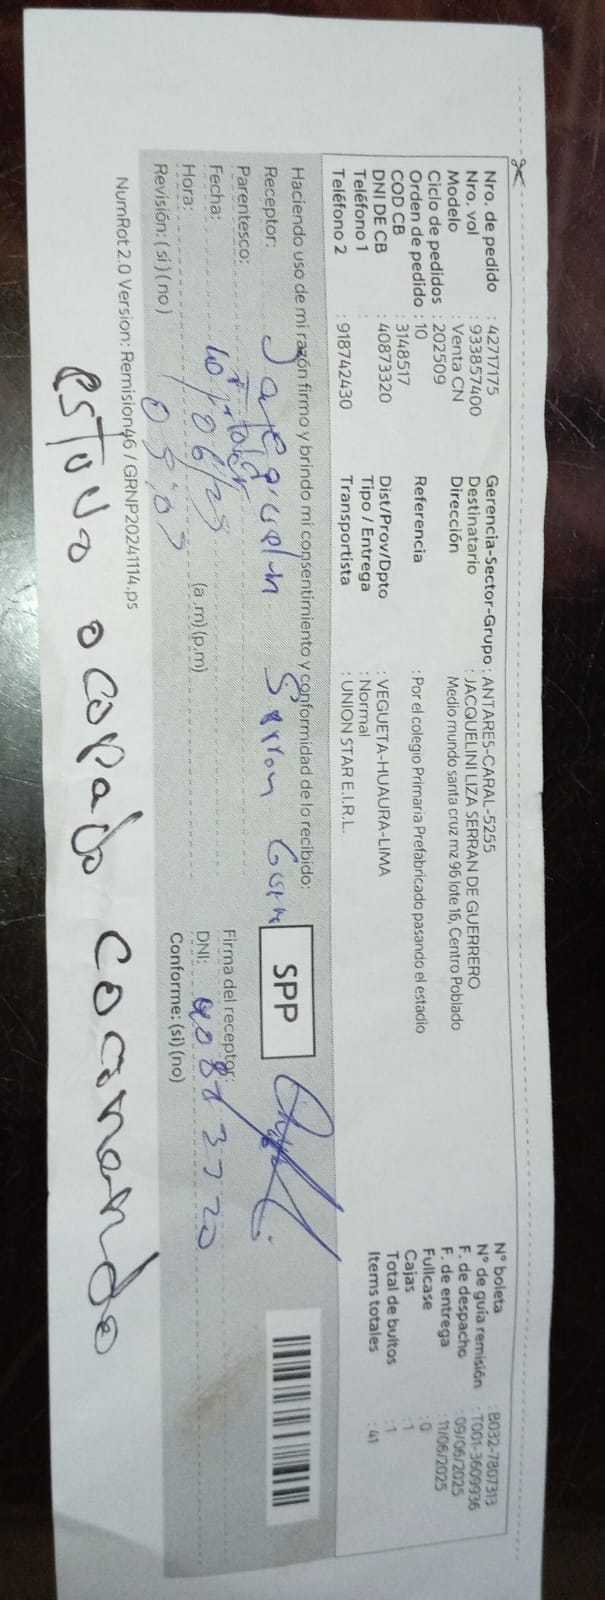 Nro. de pedido : 42717175
Nro. vol : 933857400
Modelo : Venta CN
Ciclo de pedidos : 202509
Orden de pedido : 10
COD CB : 3148517
DNI DE CB : 40873320
Teléfono 1 :
Teléfono 2 : 918742430
Gerencia-Sector-Grupo : ANTARES-CARAL-5255
Destinatario : JACQUELINI LIZA SERRAN DE GUERRERO
Dirección Medio mundo santa cruz mz 96 lote 16, Centro Poblado
Referencia : Por el colegio Primaria Prefabricado pasando el estadio
Dist/Prov/Dpto : VEGUETA-HUAURA-LIMA
Tipo / Entrega : Normal
Transportista : UNION STAR E.I.R.L.
N° boleta : B032-7807313
N° de guía remisión : T001-3609936
F. de despacho : 09/06/2025
F. de entrega : 11/06/2025
Fullcase : 0
Cajas : 1
Total de bultos : 1
Items totales : 41
Haciendo uso de mi razón firmo y brindo mi consentimiento y conformidad de lo recibido:
Receptor:
SPP
Parentesco: Titular
Firma del receptor:
Fecha: 10/06/25
DNI: 40873320
Hora: 05:05 (a.m)(p.m)
Conforme: (si)(no)
Revisión: (si)(no)
NumRot 2.0 Version: Remision46 / GRNP20241114.ps
estuvo ocopado cocinando